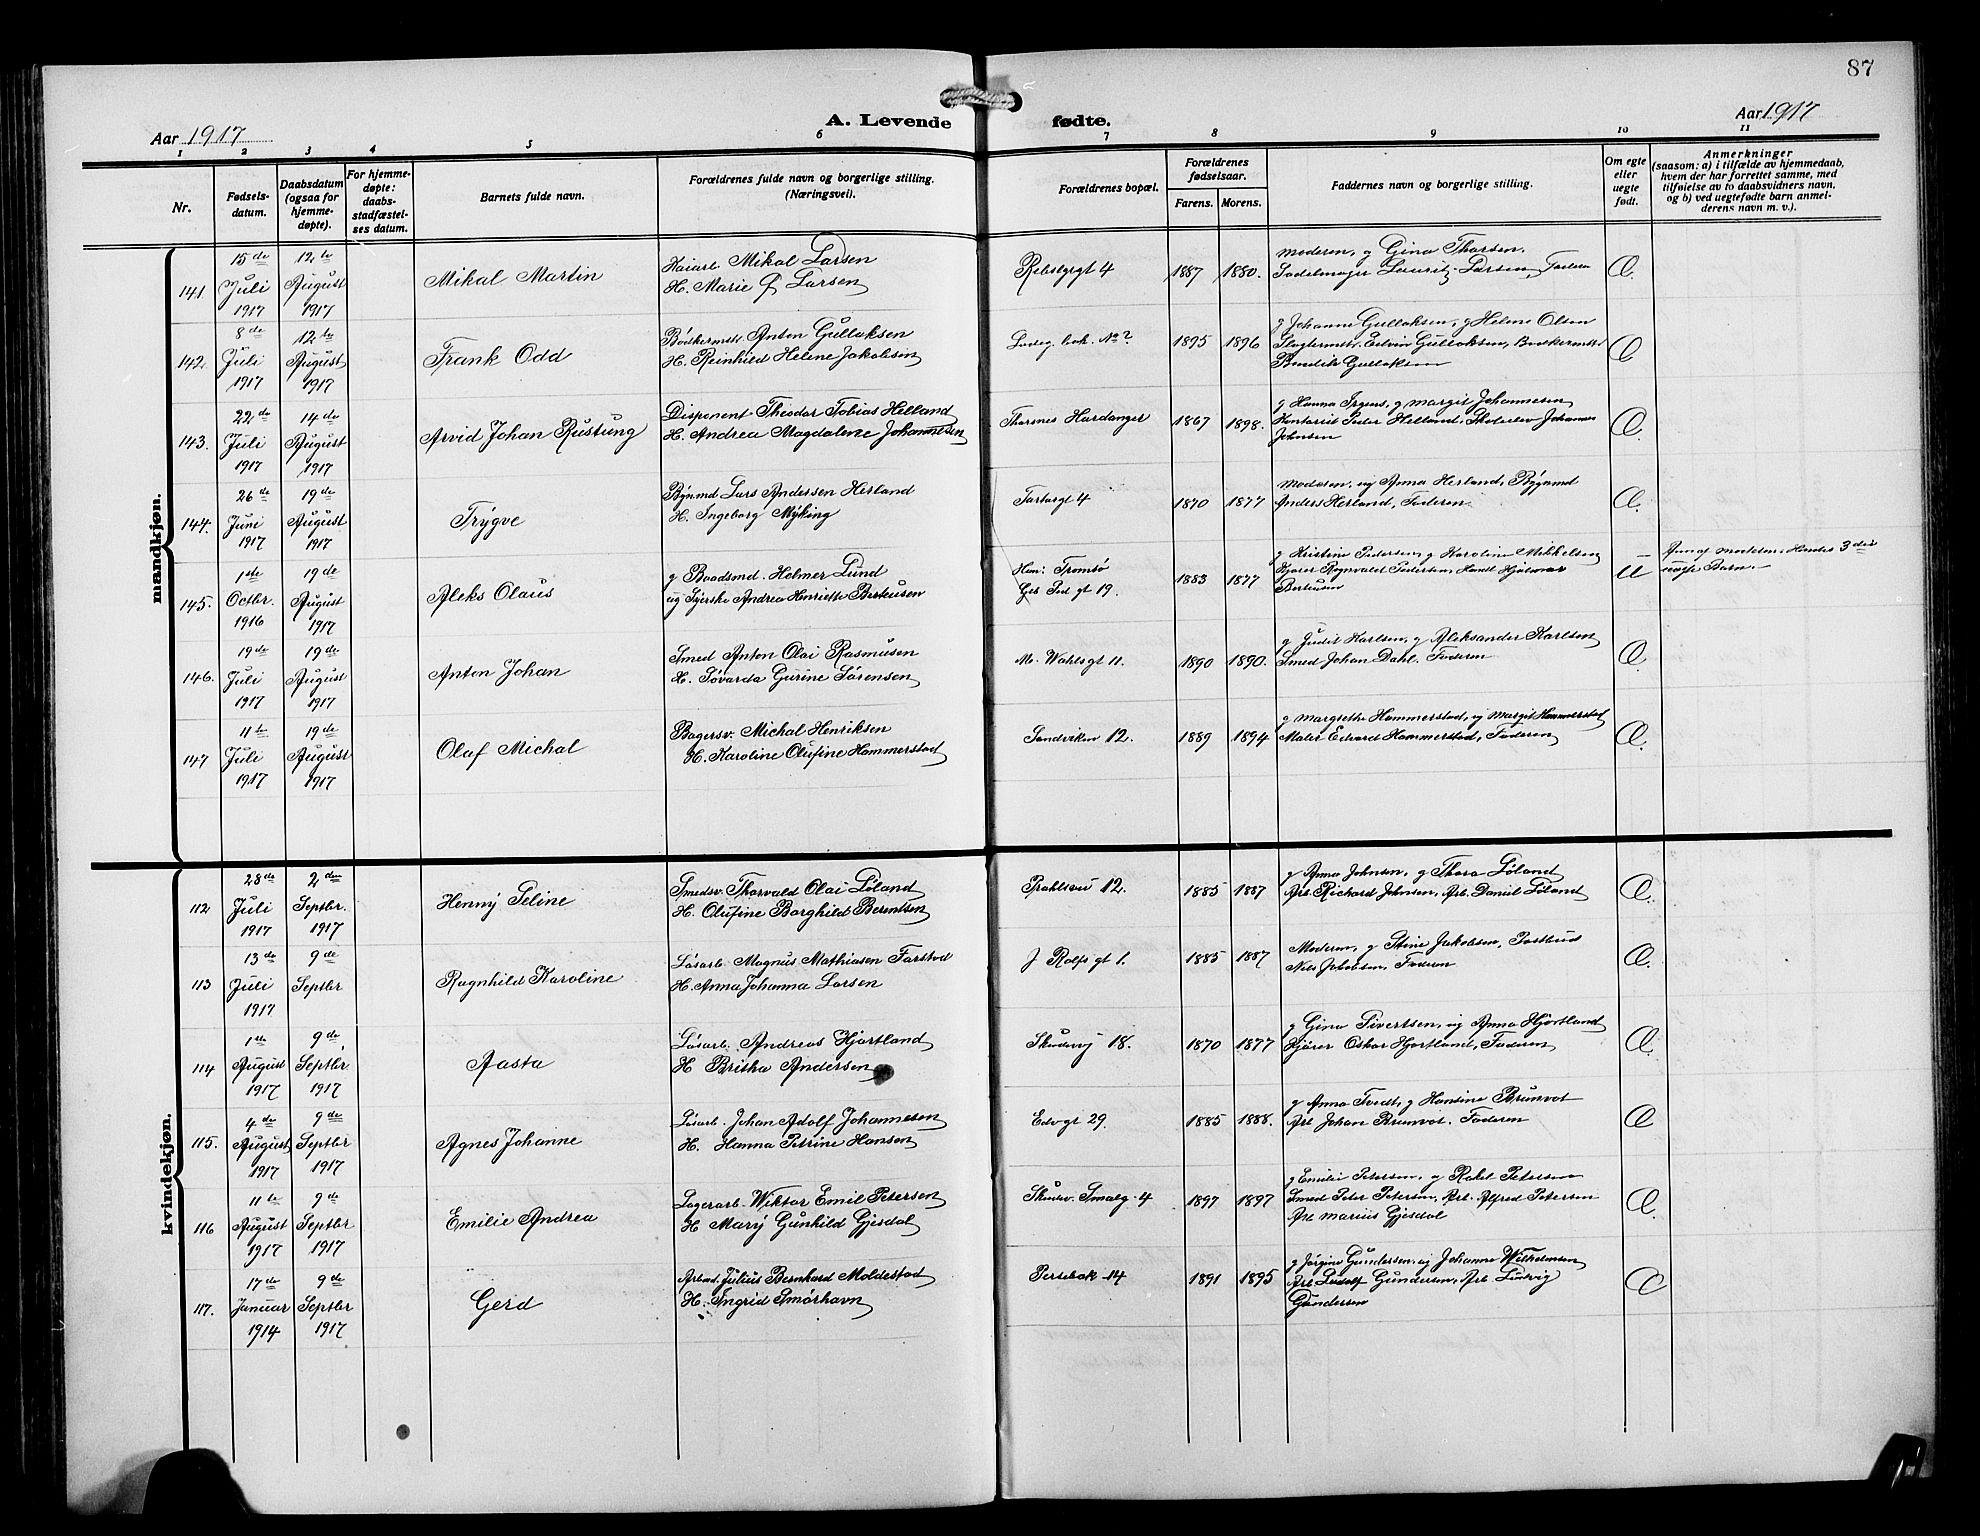 87
Aar 1917
A. Levende fødte.
Aar 1917
1 2 3 4 5 6 7 8 9 10 11
Nr.
Fødsels-
datum.
Daabsdatum
(ogsaa for
hjemme-
døpte).
For hjemme-
døpte:
daabs-
stadfæstel-
ses datum.
Barnets fulde navn.
Forældrenes fulde navn og borgerlige stilling.
(Næringsvei).
Forældrenes bopæl.
Forældrenes
fødselsaar.
Farens. Morens.
Faddernes navn og borgerlige stilling.
Om egte
eller
uegte
født.
Anmerkninger
(saasom: a) i tilfælde av hjemmedaab,
hvem der har forrettet samme, med
tilføielse av to daabsvidners navn,
og b) ved uegtefødte barn anmel-
derens navn m. v.).
mandkjøn.
141
15de
Juli
1917
12te
August
1917
Mikal Martin
Kaiarb. Mikal Larsen
H. Marie G Larsen
Rebslgrgt 4
1887 1880.
Moderen, g Gina Thorsen,
Sadelmager Lauritz Larsen, Faderen
Æ.
142.
8de
Juli
1917
12te
August
1917
Frank Odd
Bødkermstr. Anton Gullaksen
H. Reinhild Helene Jakobsen
1895 1896
g Johanne Gullaksen, g Helene Olsen
Slagtermstr, Gullaksen, Bødkermstr
Bendik Gullaksen
Æ
143.
22de
Juli
1917
14de
August
1917
Arvid Johan Rustung
Disponent Theodor Tobias Helland
H. Andrea Magdalene Johannesen
Hardanger
1867 1898.
g Hanna Irgens, g Margit Johannesen
Kontorist Peder Helland, Johannes
Johnsen
Æ.
144.
26de
Juni
1917
19de
August
1917
Trygve
Bÿnmd Lars Andersen Herland
H. Ingeborg Mÿking
Tartargt 4
1870 1877
Moderen, ug Anna Herland, Bÿgnmd
Anders Herland, Faderen
Æ.
145.
1ste
Octbr.
1916
19de
August
1917
Aleks Olaus
g Baadsmd. Helmer Lund
ug Syerske Andrea Henriette Berteusen
Han: Tromsø
Ges Ped gt 19.
1883 1877
g Kristine Pedersen, g Karoline Mikkelsen
Kjører Rognvald Pedersen, Handl Hjalmar
Berteusen
U
Anm af moderen. Hendes 3die
uægte Barn.
146.
19de
Juli
1917
19de
August
1917
Anton Johan
Smed Anton Olai Rasmusen
H. Søvarda Gurine Sørensen
M. Wahlsgt 11.
1890 1890.
g Judit Karlsen, g Aleksander Karlsen
Smed Johan Dahl. Faderen
Æ.
147
11te
Juli
1917
19de
August
1917
Olaf Michal
Bagersv. Michal Henriksen
H. Karoline Olufine Hammerstad
Sandviken 12.
1889 1894
g Margrethe Hammerstad, ug Margit Hammerstad
Maler Edvard Hammerstad, Faderen
Æ.
kvindekjøn.
112
28de
Juli
1917
2den
Septbr.
1917
Henny Seline
Smedsv. Thorvald Olai Løland
H. Olufine Borghild Berentsen
Prahlsvei 12.
1885 1887
g Anna Johnsen, g Thora Løland
Arb Richard Johnsen, Arb. Daniel Løland
Æ.
113
13de
Juli
1917
9de
Septbr
Ragnhild Karoline
Løsarb. Magnus Mathiasen Farstad
H. Anna Johanna Larsen
J Rolfs gt 1.
1885 1887
Moderen, g Stine Jakobsen, Postbud
Nils Jakobsen, Faderen
Æ.
114
1ste
August
1917
9de
Septbr
1917
Aasta
Løsarb. Andreas Hjortland
H Britha Andersen
Skudevij 18.
1870 1877
g Gina Sivertsen, ug Anna Hjortland
Kjører Oskar Hjortland, Faderen
Æ.
115.
4de
August
1917
9de
Septbr
1917
Agnes Johanne
Løsarb. Johan Adolf Johannesen
H. Hanna Petrine Hansen
Edvgt 29.
1885 1888.
g Anna Tvedt, g Hansine Brunvot
Arb Johan Brunvot, Faderen
Æ
116
11te
August
1917
9de
Septbr
1917
Emilie Andrea
Lagerarb. Wiktor Emil Petersen
H Marÿ Gunhild Gjesdal
Skudev. Smalg. 4
1897 1897
g Emilie Petersen, g Rakel Petersen
Smed Peter Petersen, Arb. Alfred Petersen
Arb Marius Gjesdal
Æ.
117.
17de
Januar
1914
9de
Septbr
1917
Gerd
Arbmd. Julius Bernhard Moldestad
H. Ingrid Smørhavn
Persebak 14
1891 1895
g Jørgine Gundersen, ug Johanne Wilhelmsen
Arb Ludolf Gundersen, Arb Ludvig
Gundersen
Æ